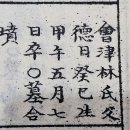 會津林氏父
德日癸巳生
甲午五月七
日卒〇墓合
墳